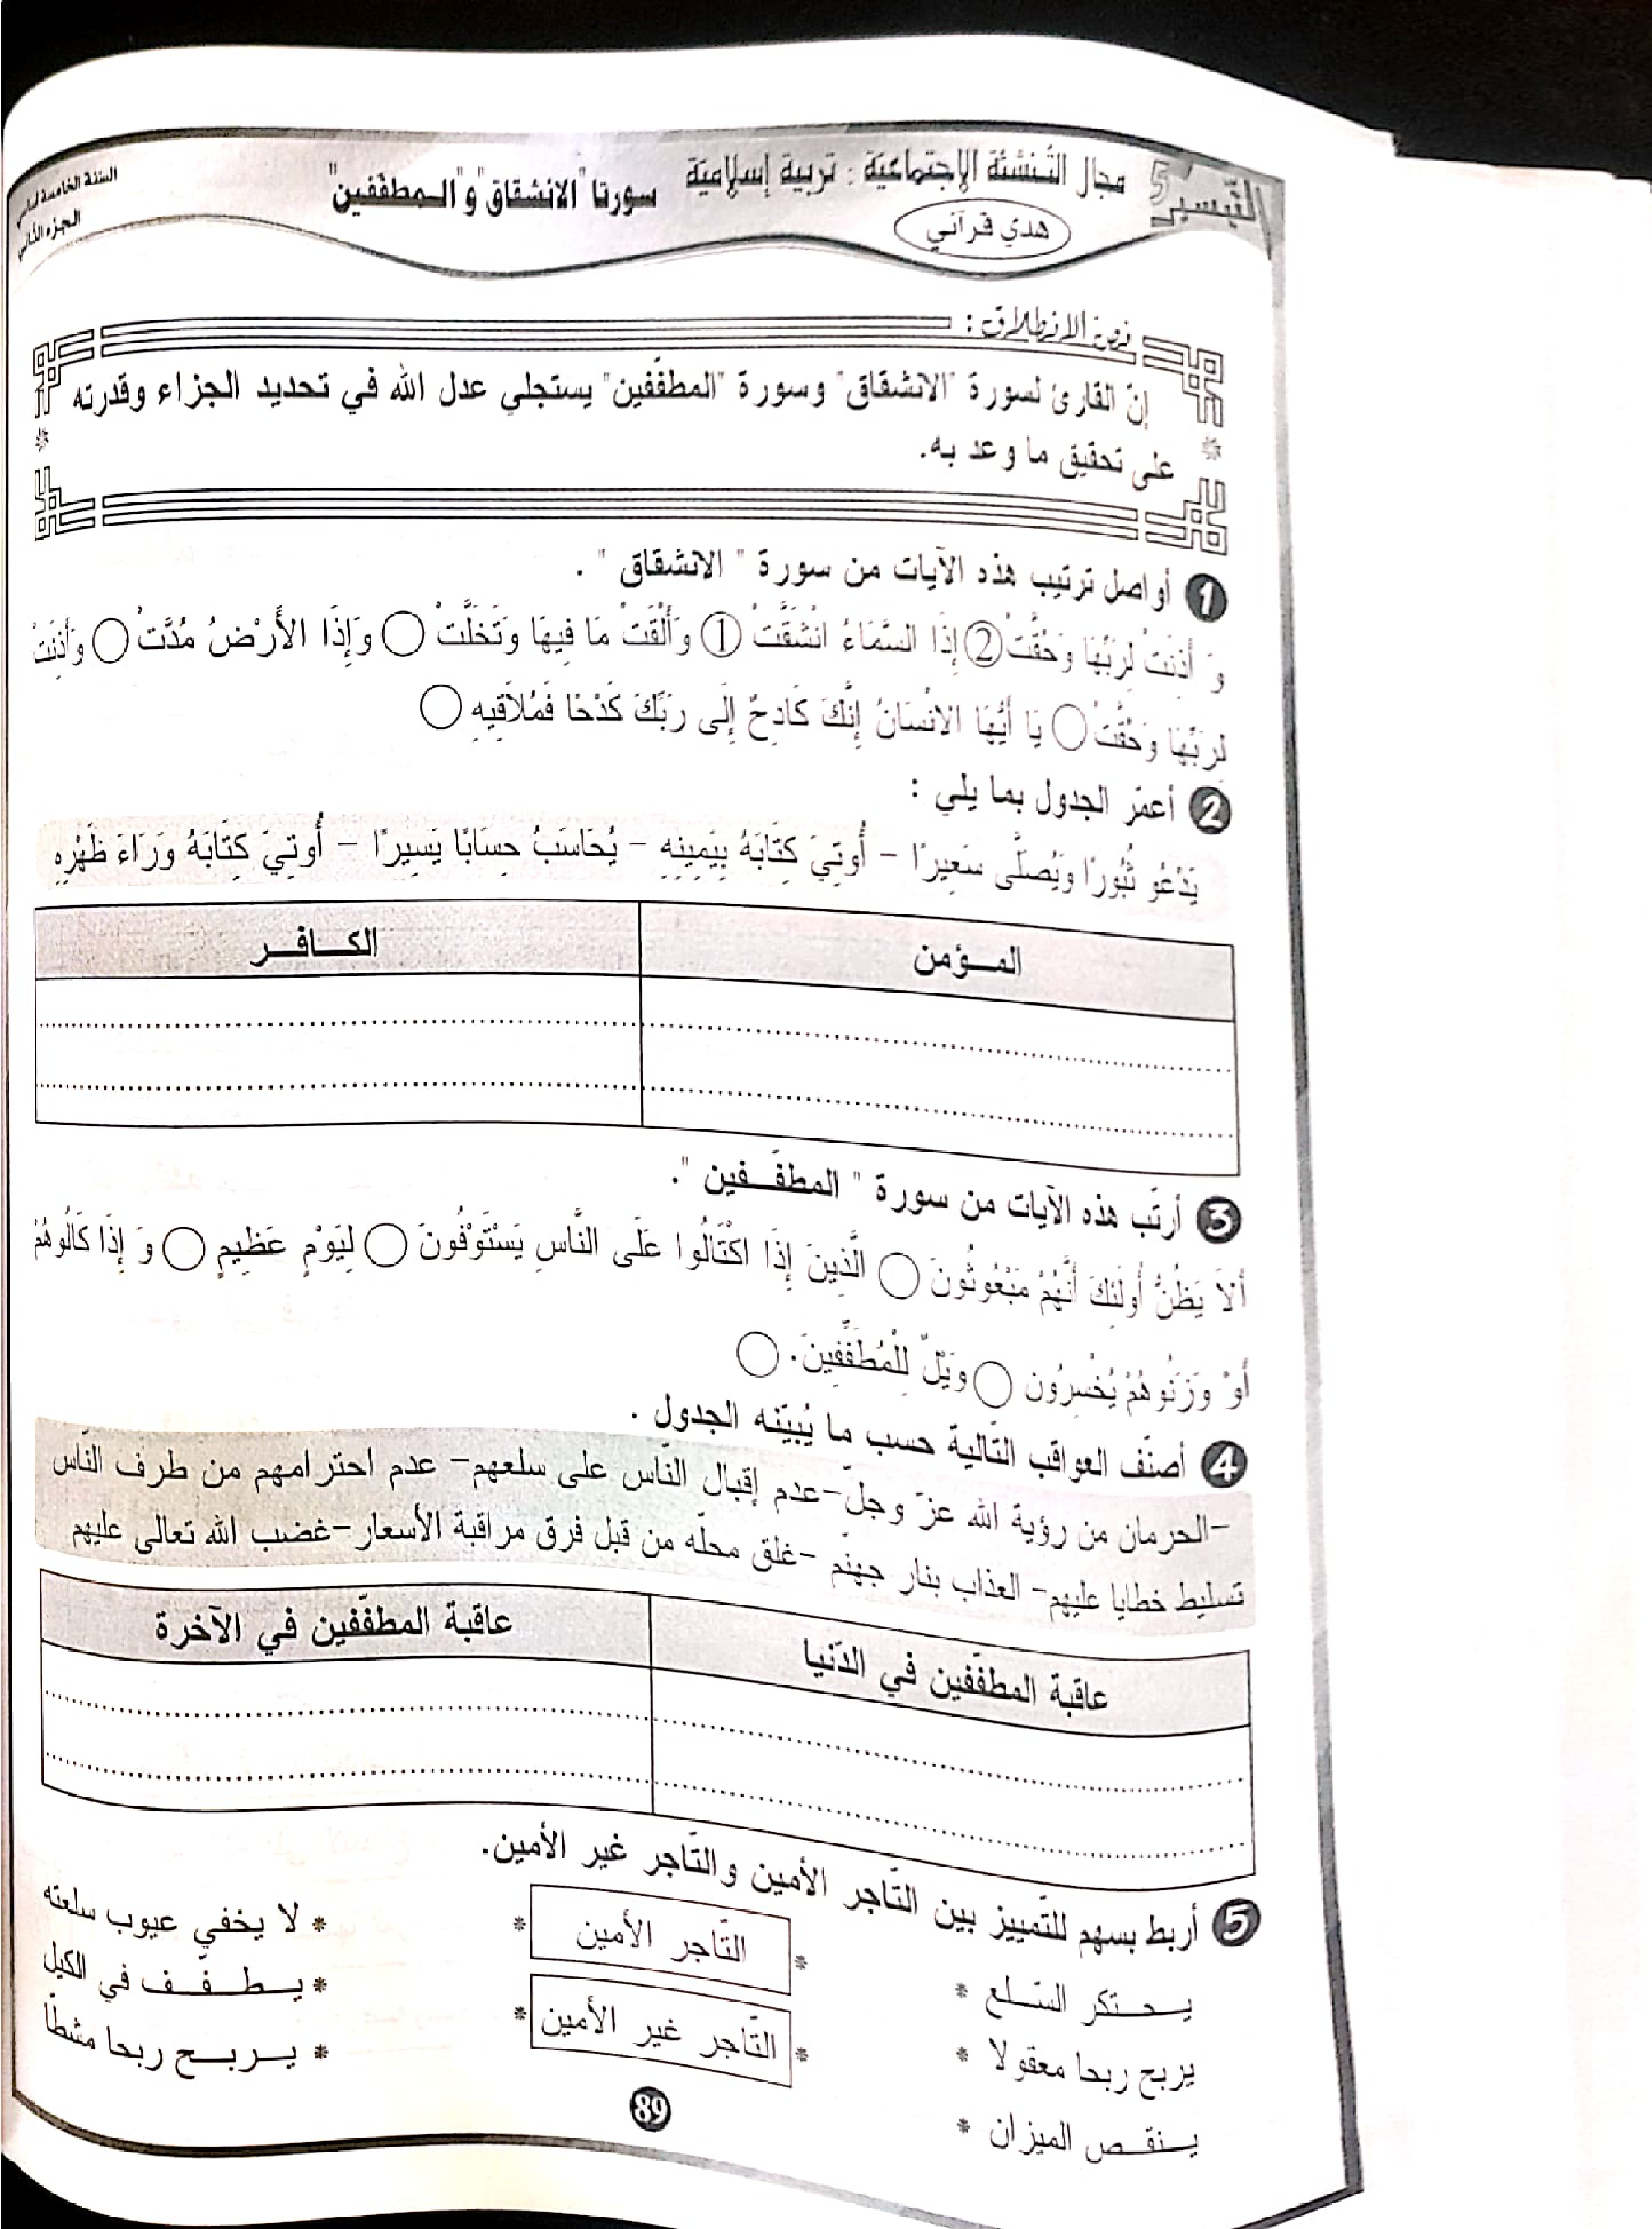 التيسير 5
مجال التنشئة الاجتماعية : تربية إسلامية
هدي قرآني
سورتا "الانشقاق" و"المطفّفين"
السنة الخامسة أساسي
الجزء الثاني
نص الانطلاق :
إنّ القارئ لسورة "الانشقاق" وسورة "المطفّفين" يستجلي عدل الله في تحديد الجزاء وقدرته
على تحقيق ما وعد به.
1 أواصل ترتيب هذه الآيات من سورة " الانشقاق " .
وَ أَذِنَتْ لِرَبِّهَا وَحُقَّتْ ② إِذَا السَّمَاءُ انْشَقَّتْ ① وَأَلْقَتْ مَا فِيهَا وَتَخَلَّتْ ◯ وَإِذَا الأَرْضُ مُدَّتْ ◯ وَأَذِنَتْ
لِرَبِّهَا وَحُقَّتْ ◯ يَا أَيُّهَا الانْسَانُ إِنَّكَ كَادِحٌ إِلَى رَبِّكَ كَدْحًا فَمُلاَقِيهِ ◯
2 أعمّر الجدول بما يلي :
يَدْعُو ثُبُورًا وَيُصَلَّى سَعِيرًا – أُوتِيَ كِتَابَهُ بِيَمِينِهِ – يُحَاسَبُ حِسَابًا يَسِيرًا – أُوتِيَ كِتَابَهُ وَرَاءَ ظَهْرِهِ
المـؤمن
الكـافـر
3 أرتّب هذه الآيات من سورة " المطفّـفين ".
أَلاَ يَظُنُّ أُولَئِكَ أَنَّهُمْ مَبْعُوثُونَ ◯ الَّذِينَ إِذَا اكْتَالُوا عَلَى النَّاسِ يَسْتَوْفُونَ ◯ لِيَوْمٍ عَظِيمٍ ◯ وَ إِذَا كَالُوهُمْ
أَوْ وَزَنُوهُمْ يُخْسِرُون ◯ وَيْلٌ لِلْمُطَفِّفِينَ. ◯
4 أصنّف العواقب التّالية حسب ما يُبيّنه الجدول .
–الحرمان من رؤية الله عزّ وجلّ–عدم إقبال النّاس على سلعهم– عدم احترامهم من طرف النّاس
تسليط خطايا عليهم– العذاب بنار جهنّم –غلق محلّه من قبل فرق مراقبة الأسعار–غضب الله تعالى عليهم
عاقبة المطفّفين في الدّنيا
عاقبة المطفّفين في الآخرة
5 أربط بسهم للتّمييز بين التّاجر الأمين والتّاجر غير الأمين.
يـحـتكر السّـلع *
* التّاجر الأمين *
* لا يخفي عيوب سلعته
يربح ربحا معقولا *
* التّاجر غير الأمين *
* يـطـفّـف في الكيل
يـنقـص الميزان *
* يـربـح ربحا مشطّا
89